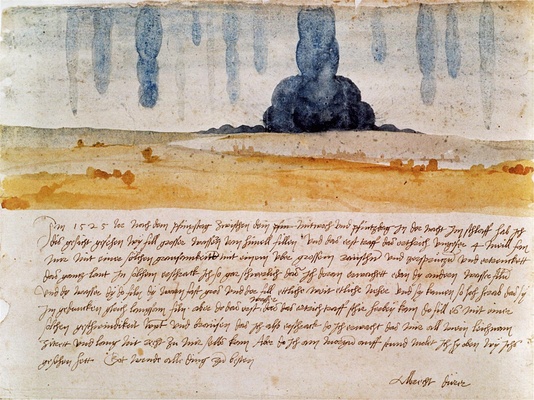 Im 1525 Jor nach dem pfinxstag zwischen dem mitwoch und pfintzdag in der nacht im schlaff hab ich
dis gesicht gesehen wy fill grosser wassern vom himell fillen Und das erst traff das erthrich ungefer 4 meill fan
mir mit einer solchen grausamkeitt mit einem uber grossem raüschn und zersprützn und ertrenckett
das gannz lant In solchem erschrack ich so gar schwerlich das ich doran erwachett edan dy andern wasser filn
Und dy wasser dy do filn dy warn fast gros und der fill ettliche weit etliche neher und sy kamen so hoch herab das sy
im gedancken gleich langsam filn aber do das erst wasser das das ertrich traff schir herbey kam do fill es mit einer
solchen geschwindikeit wynt und braüsen das ich also erschrack do ich erwacht das mir all mein leichnam
zitrett und lang nit recht zu mir selbs kam Aber do ich am morgn auff stund molet ich hy oben wy ichs
gesehen hett Got wende alle ding zu besten
Albrecht dürer